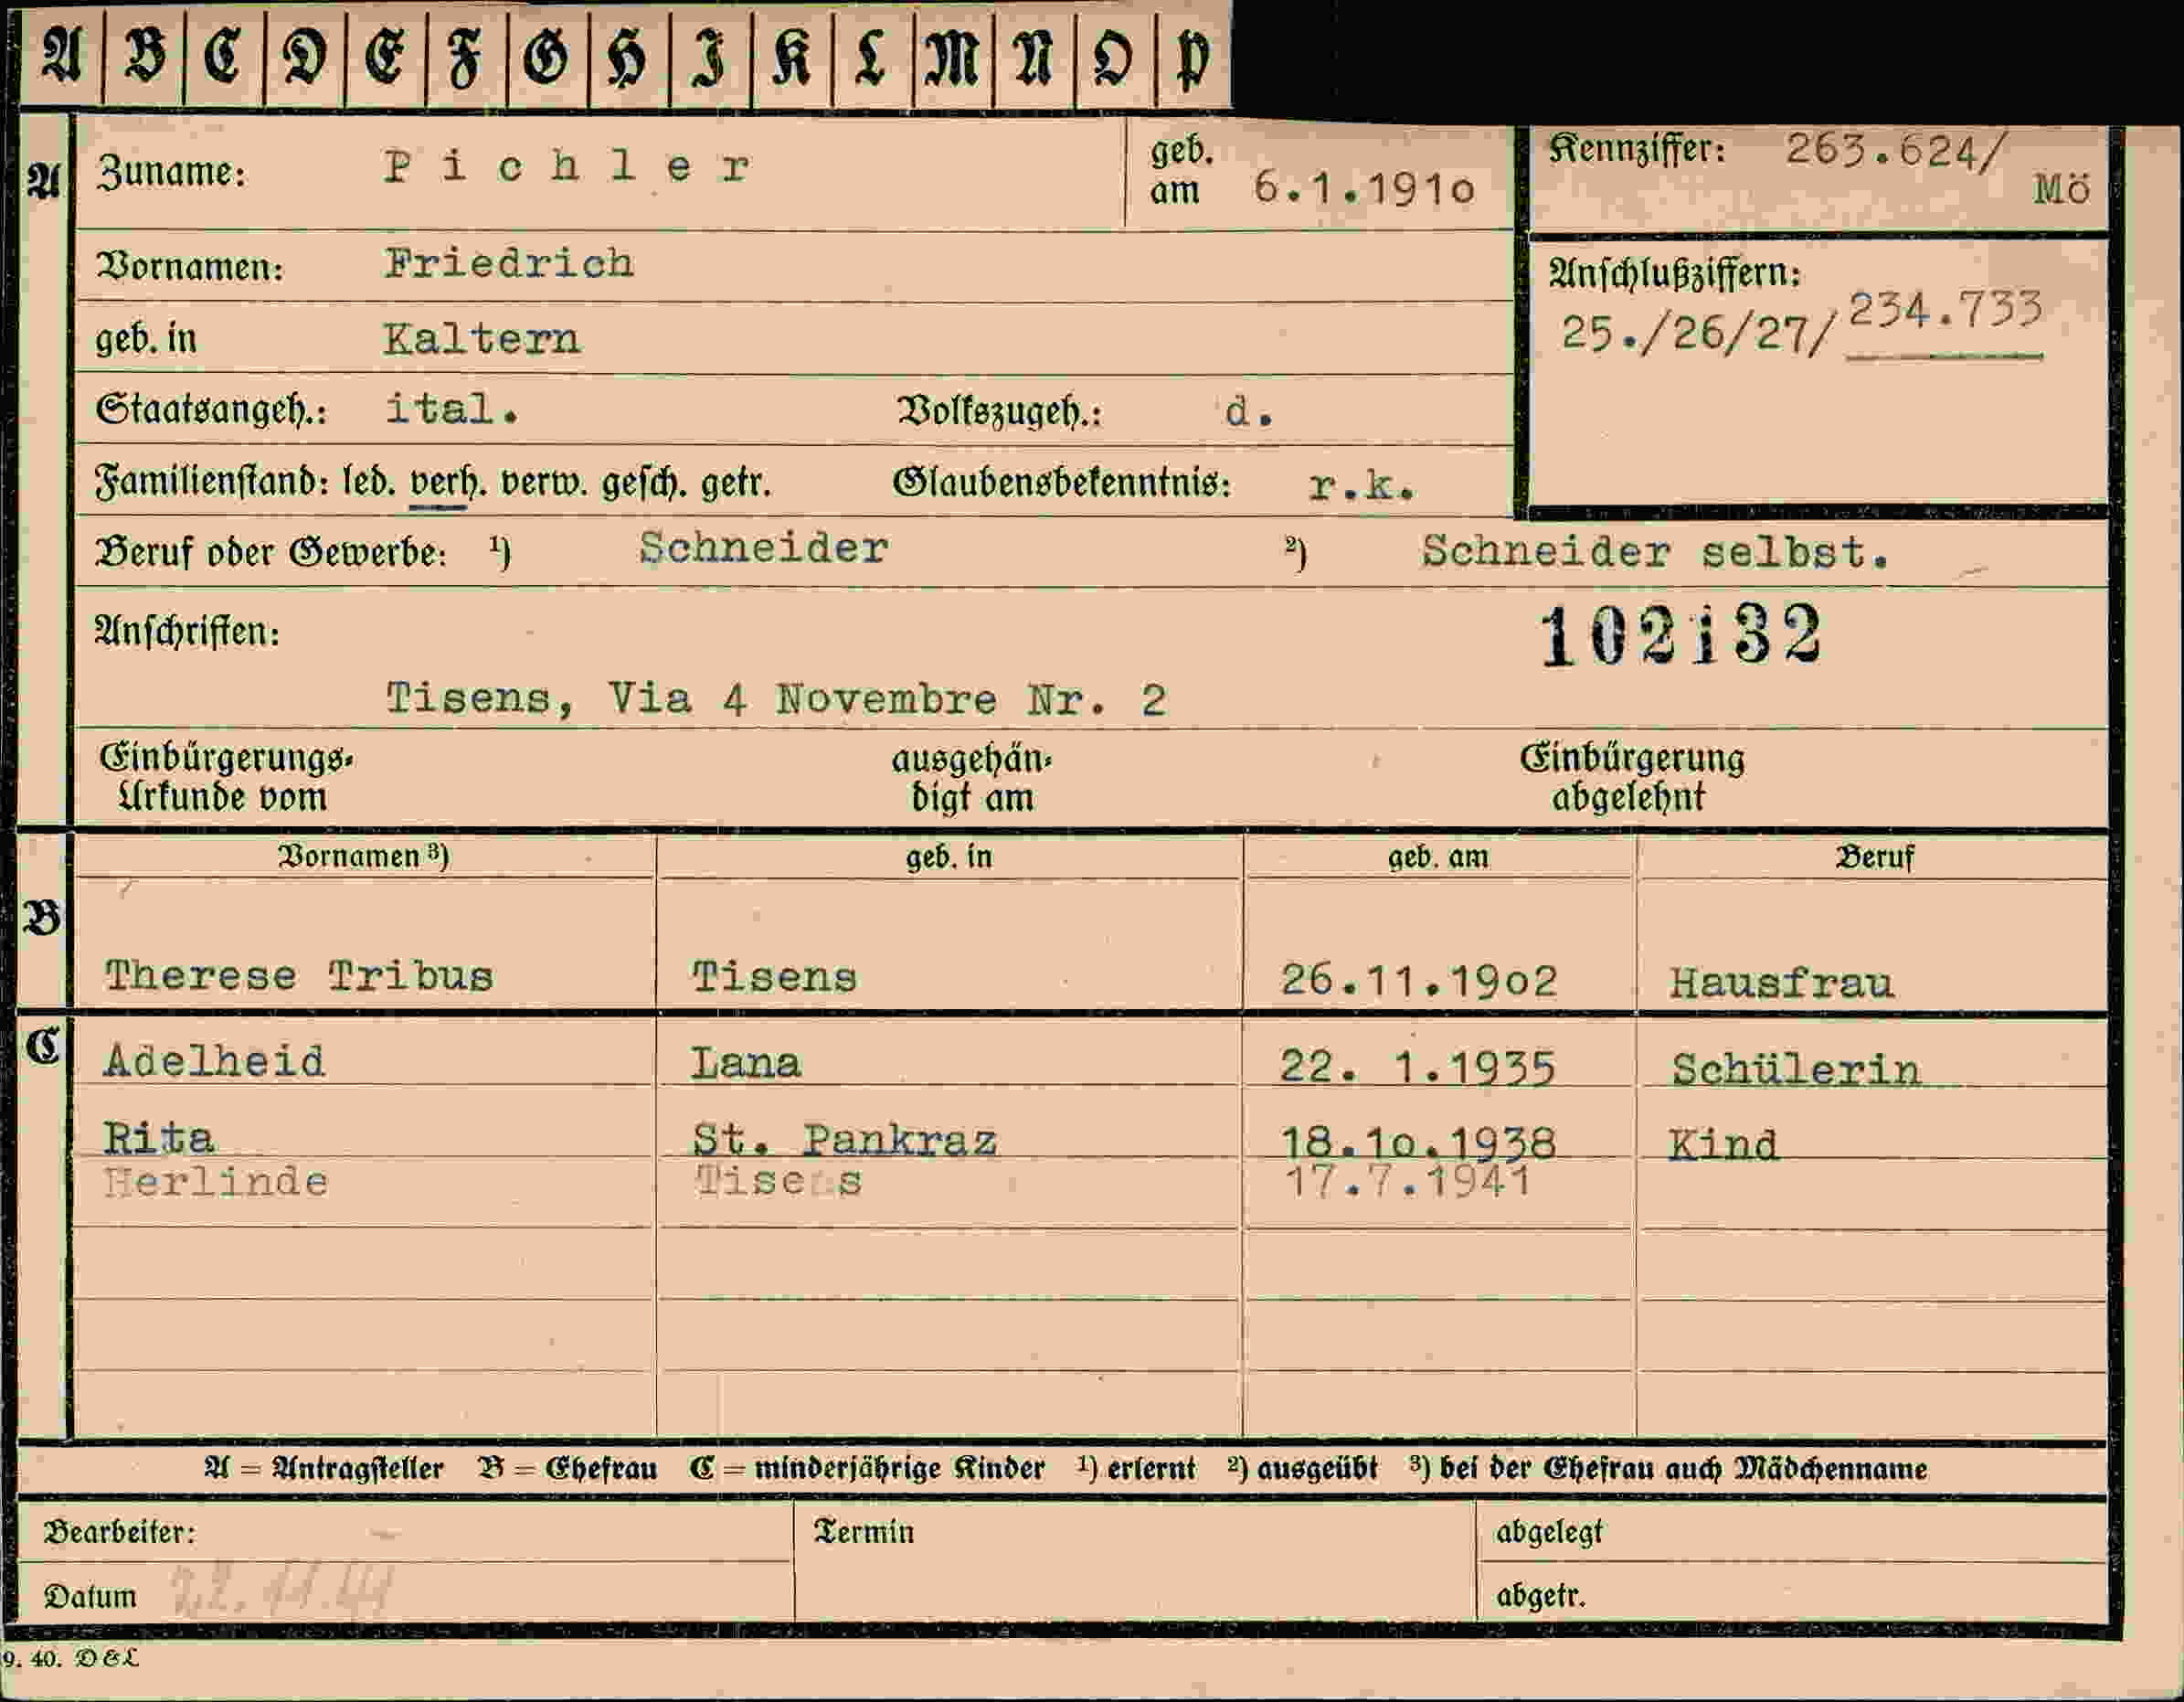 A B C D E F G H I K L M N O P
A
Zuname: Pichler geb. am 6.1.191o
Kennziffer: 263.624/
Mö
Vornamen: Friedrich
Anschlußziffern:
25./26/27/234.733
geb. in Kaltern
Staatsangeh.: ital. Volkszugeh.: d.
Familienstand: led. verh. verw. gesch. getr. Glaubensbekenntnis: r.k.
Beruf oder Gewerbe: 1) Schneider 2) Schneider selbst.
Anschriften: 102132
Tisens, Via 4 Novembre Nr. 2
Einbürgerungs- ausgehän- Einbürgerung
Urkunde vom digt am abgelehnt
Vornamen 3) geb. in geb. am Beruf
B
Therese Tribus Tisens 26.11.19o2 Hausfrau
C
Adelheid Lana 22. 1.1935 Schülerin
Rita St. Pankraz 18.1o.1938 Kind
Herlinde Tisens 17.7.1941
A = Antragsteller B = Ehefrau C = minderjährige Kinder 1) erlernt 2) ausgeübt 3) bei der Ehefrau auch Mädchenname
Bearbeiter: Termin abgelegt
Datum 22.11.41 abgetr.
9. 40. D&L